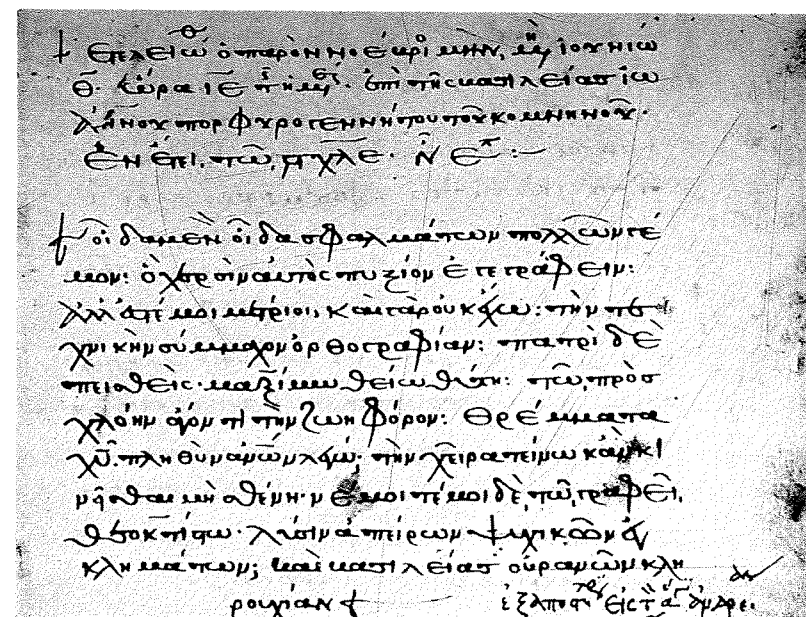 + Ἐτελειώθ ὁ παρὸν νοέβρι μην, μη ἰουνίω
θ· ὥρα ιε τῆ ἡμέ· ἐπὶ τῆς βασιλείας ἰω
άννου πορφυρογεννήτου τοῦ κομνηνοῦ·
ἐν ἔτει, τῶ, ϛχλε· ἰν ε :—
+ οἶδα μὲν οἶδα σφαλμάτων πολλῶν γέ
μον: ὃ χερσὶν αὐτὸς πυξίον ἐγεγράφειν:
ἀλλά γέ μοι μέτριοι, καὶ γὰρ οὐκ ἔχω: τὴν τε
χνικὴν σύμμαχον ὀρθογραφίαν: πατρὶ δὲ
πεισθεὶς· μαξίμω θείω θύτη: τῶ, πρὸς
χλόην ἄγοντι τὴν ζωηφόρον: θρέμματα
χυ. λόγω· τὴν χεῖρα τείνω κἂν κι
νῆσθαι μὴ σθένη· νέμοιτέ μοι δὲ, τῶ, γραφεῖ,
θεοκτίστω· λύσιν ἀπείρων ψυχικῶν ἐγ
κλημάτων; καὶ βασιλείας οὐρανῶν κλη
ρουχίαν + εἰς τὰ